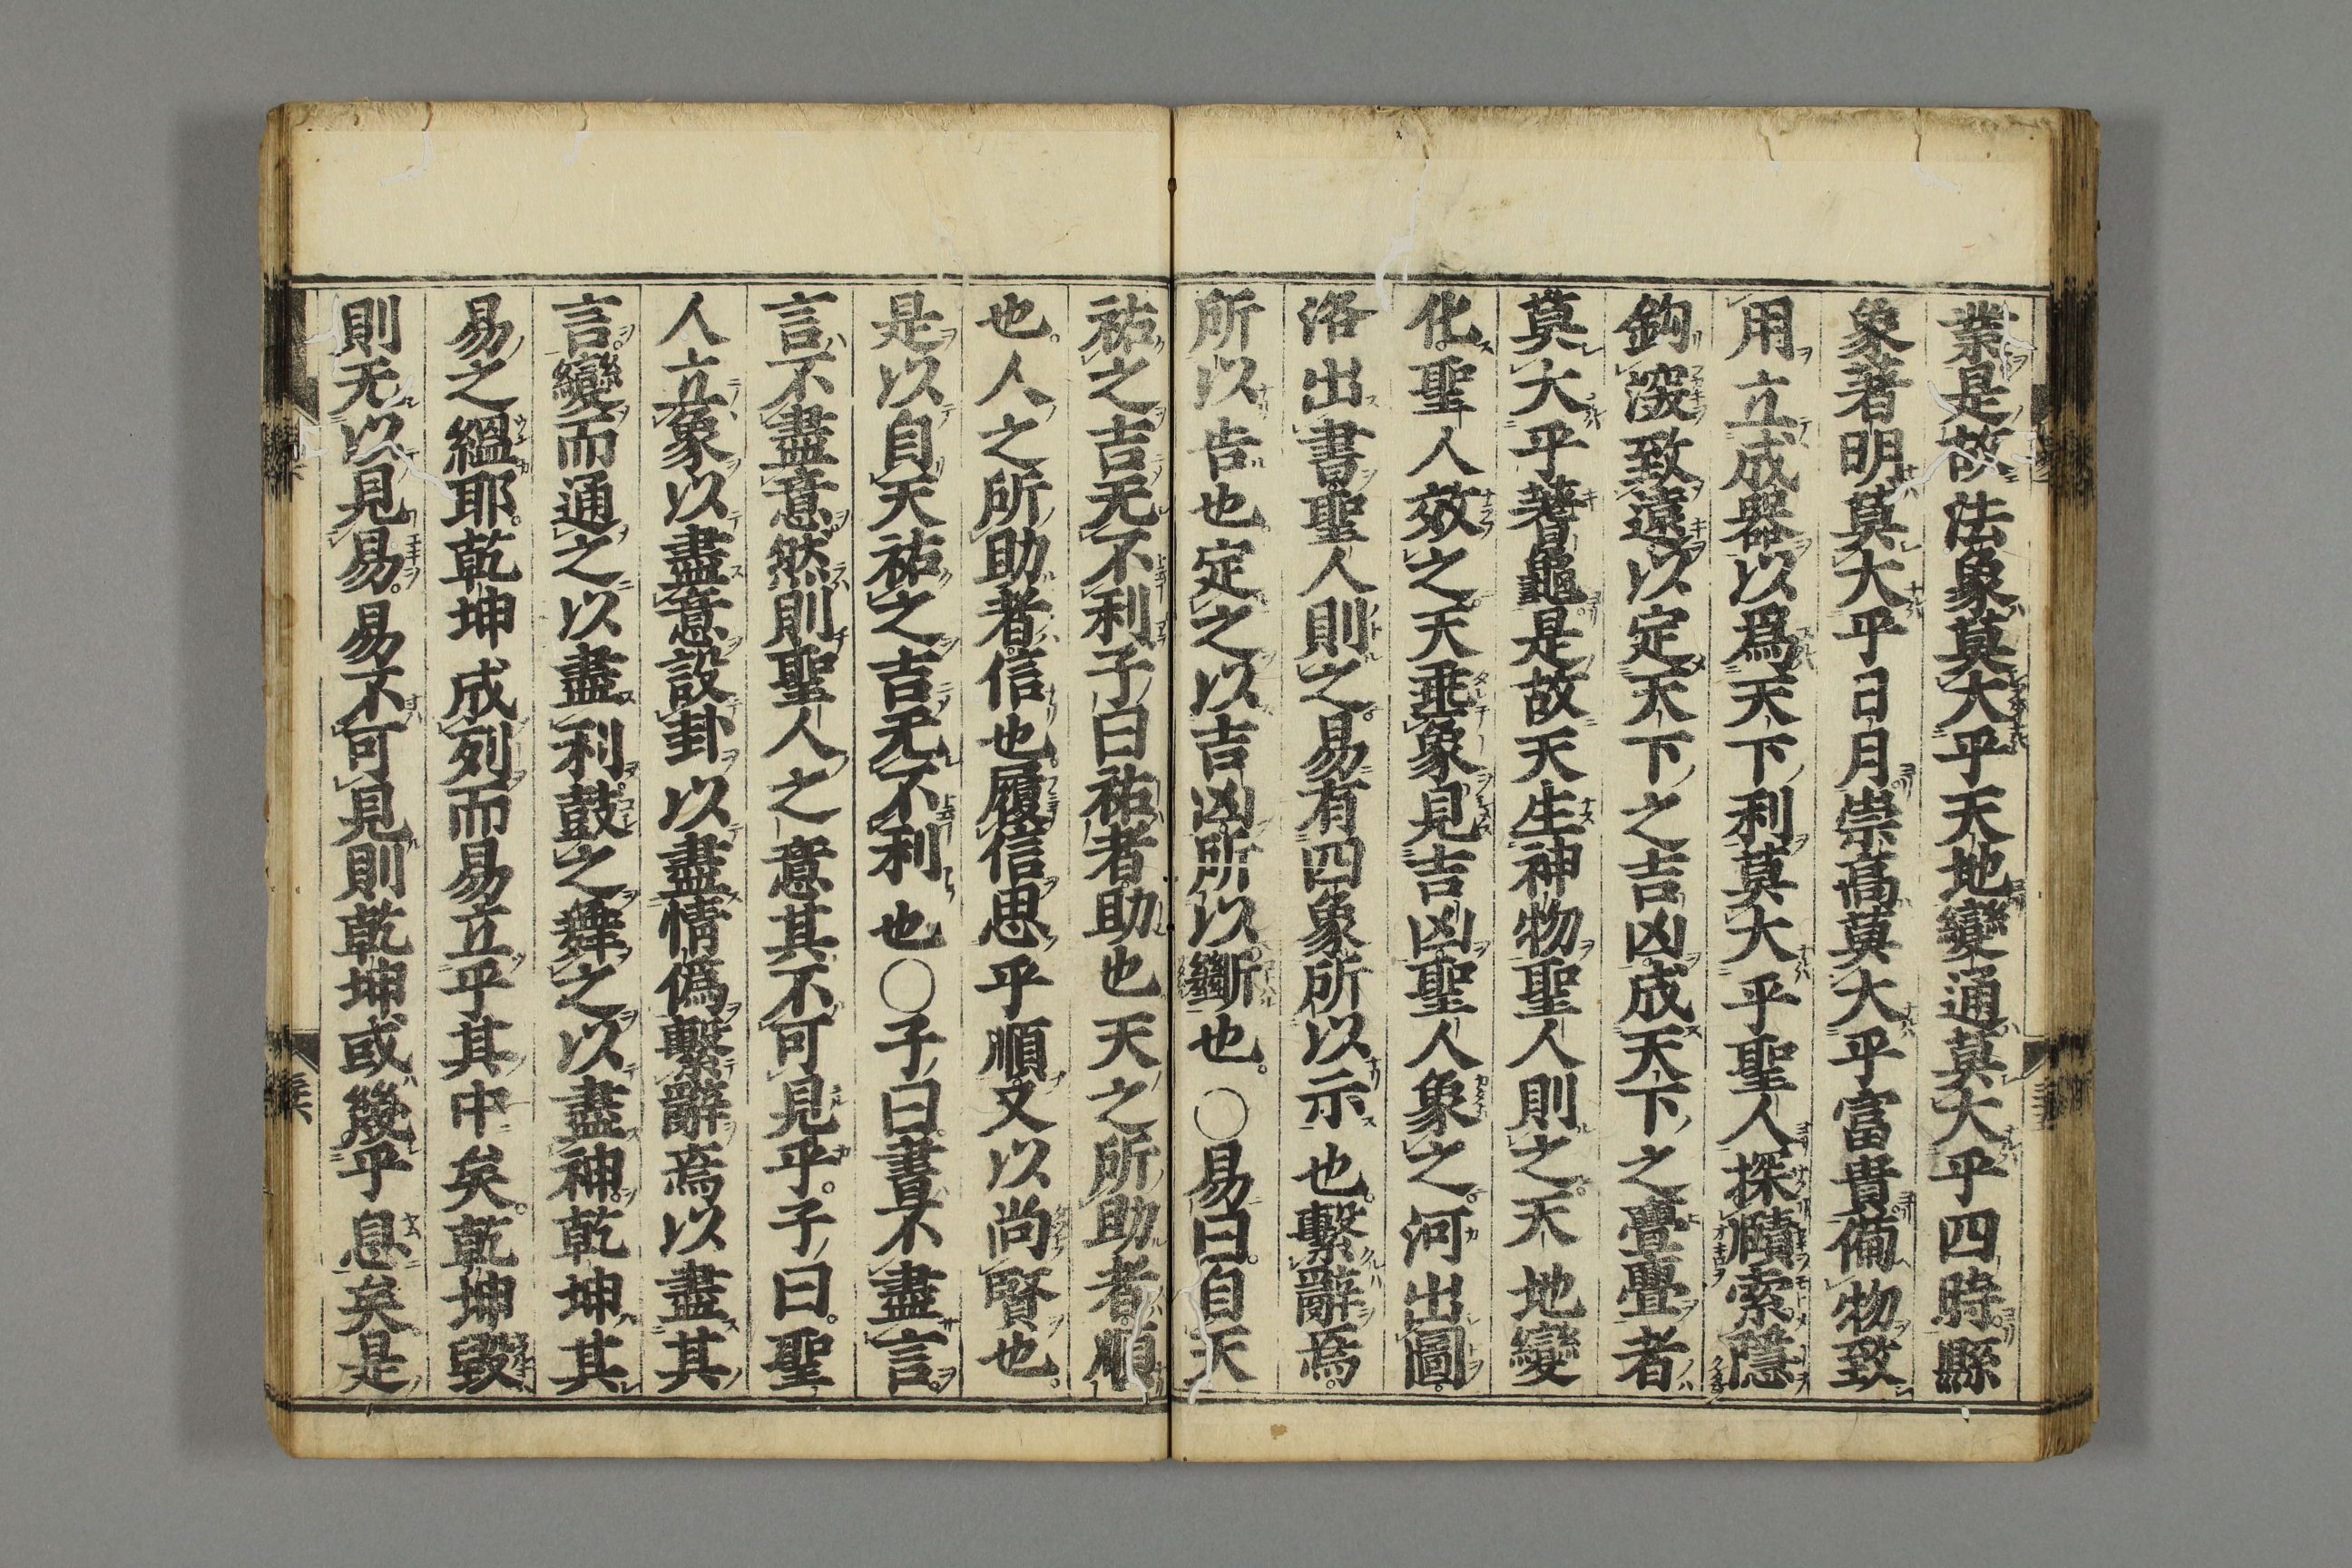 業是故法象莫大乎天地變通莫大乎四時縣
象著明莫大乎日月崇高莫大乎富貴備物致
用立成器以爲天下利莫大乎聖人探賾索隱
鉤深致遠以定天下之吉凶成天下之亹亹者
莫大乎蓍龜是故天生神物聖人則之天地變
化聖人效之天垂象見吉凶聖人象之河出圖
洛出書聖人則之易有四象所以示也繫辭焉
所以告也定之以吉凶所以斷也○易曰自天
祐之吉无不利子曰祐者助也天之所助者順
也人之所助者信也履信思乎順又以尚賢也
是以自天祐之吉无不利也○子曰書不盡言
言不盡意然則聖人之意其不可見乎子曰聖
人立象以盡意設卦以盡情僞繫辭焉以盡其
言變而通之以盡利鼓之舞之以盡神乾坤其
易之緼耶乾坤成列而易立乎其中矣乾坤毀
則无以見易易不可見則乾坤或幾乎息矣是